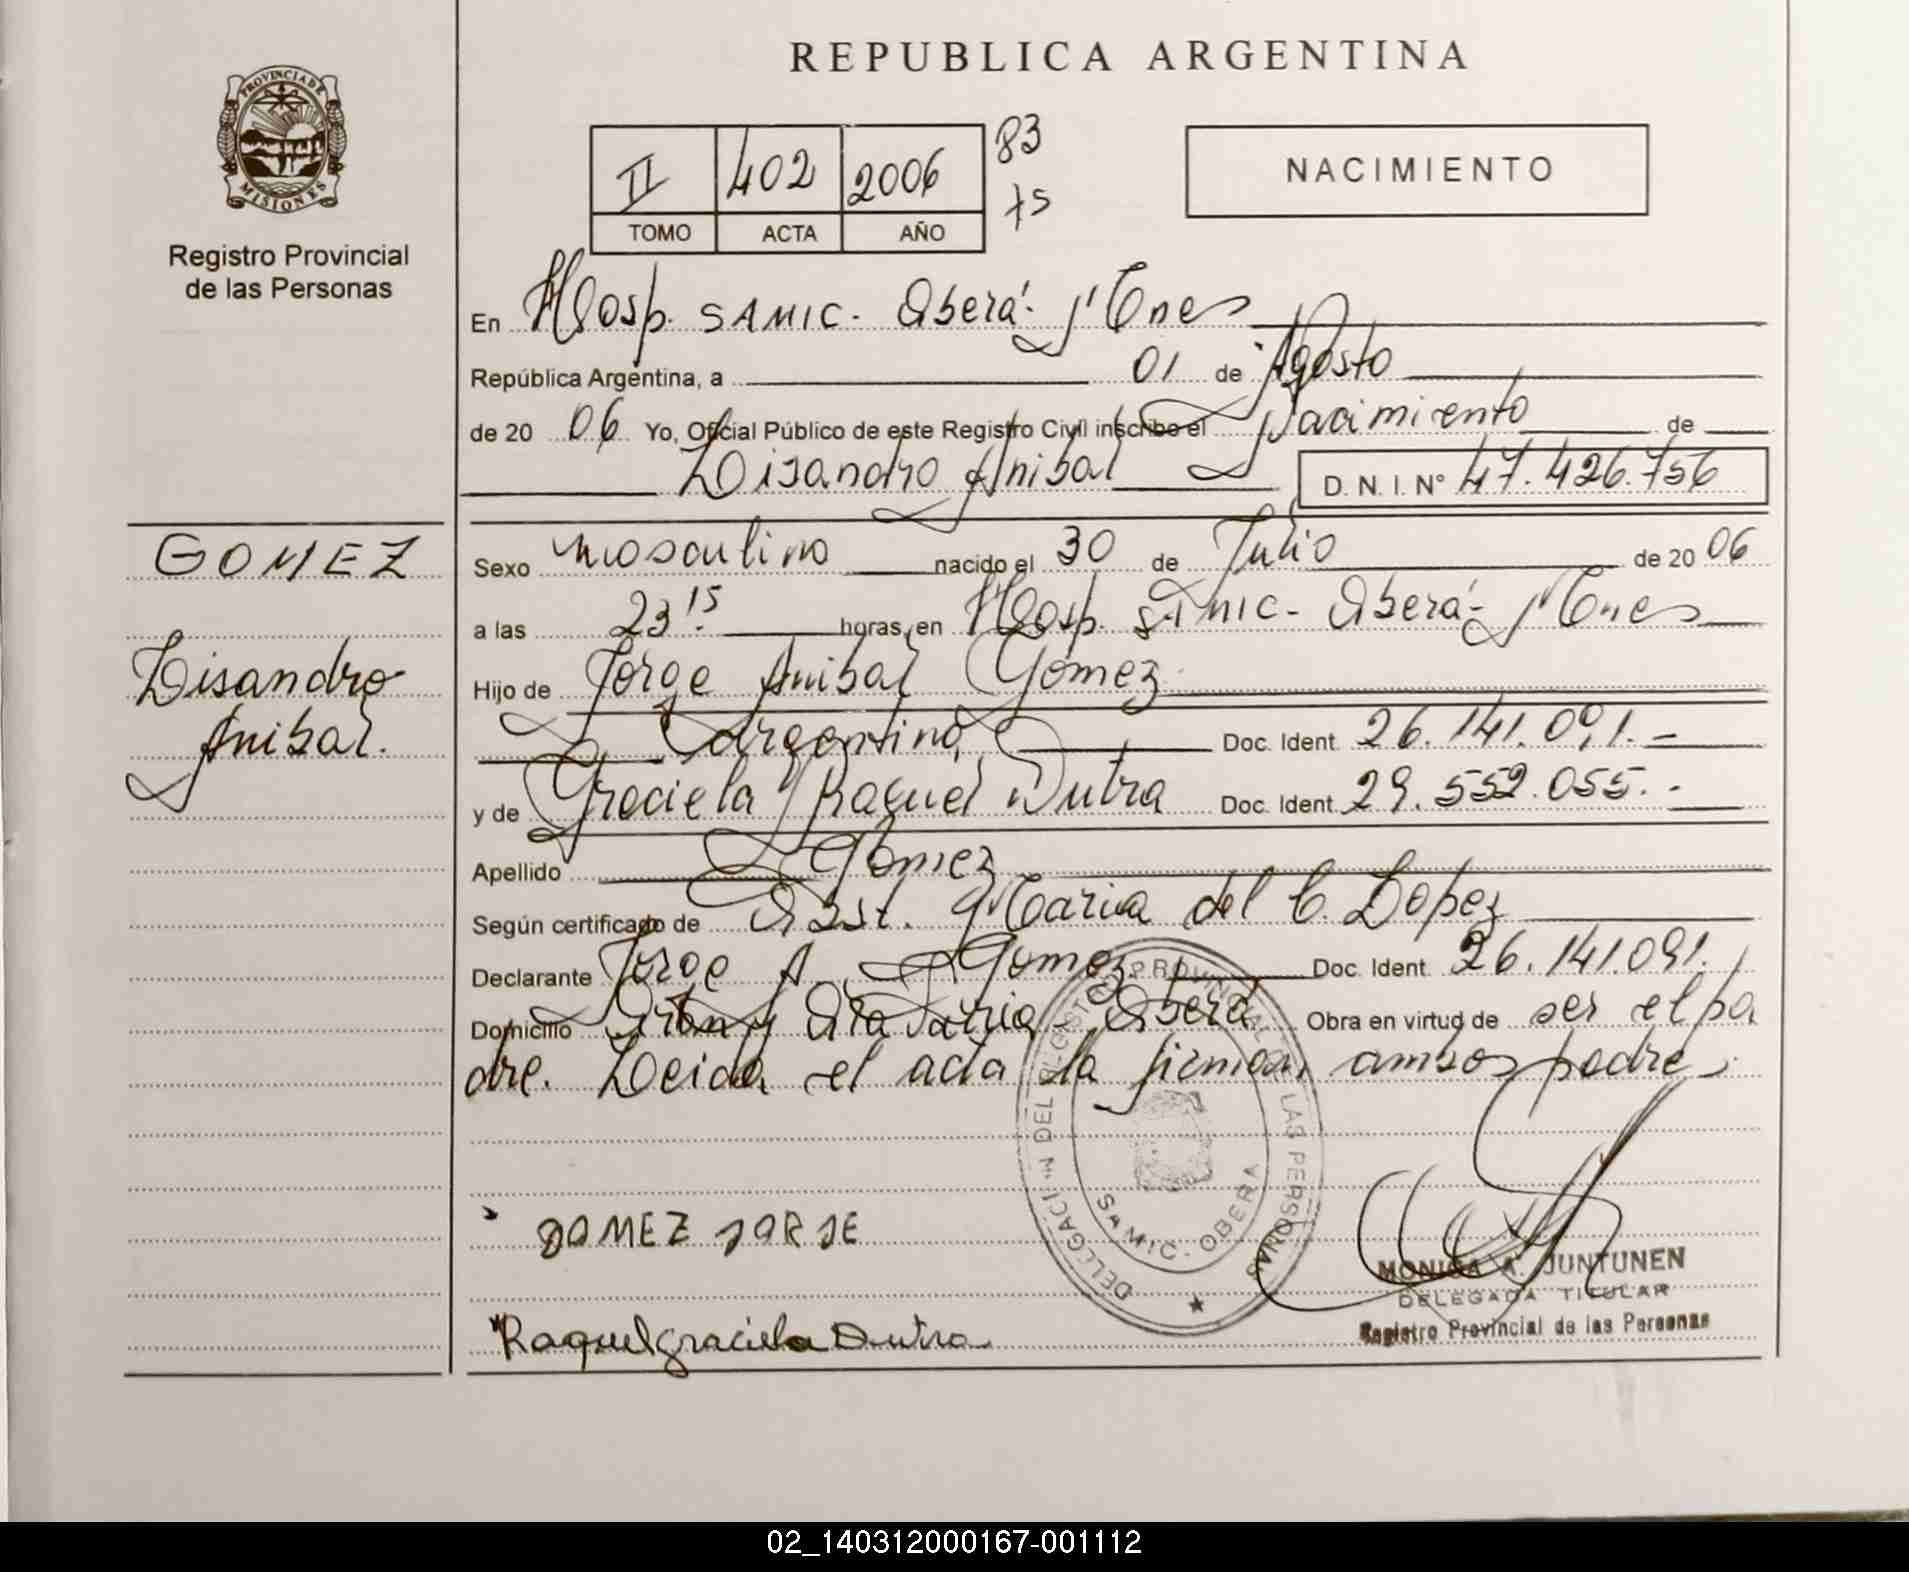 REPUBLICA ARGENTINA
PROVINCIA DE
MISIONES
Registro Provincial
de las Personas
II 402 2006 83
75
TOMO ACTA AÑO
NACIMIENTO
En Hosp. SAMIC. Oberá. Mnes
República Argentina, a 01 de Agosto
de 20 06 Yo, Oficial Público de este Registro Civil inscribo el Nacimiento de
Lisandro Anibal D. N. I. N° 47.426.756
GOMEZ
Lisandro
Anibal.
Sexo masculino nacido el 30 de Julio de 20 06
a las 23 15 horas, en Hosp. SAMIC - Oberá - Mnes
Hijo de Jorge Anibal Gómez
Argentino, Doc. Ident. 26.141.091.-
y de Graciela Raquel Dutra Doc. Ident. 29.552.055.-
Apellido Gómez
Según certificado de Obst. Maria del C. Lopez
Declarante Jorge A. Gomez Doc. Ident. 26.141.091.
Domicilio y Oberá Obra en virtud de ser el pa
dre. Leida el acta la firman ambos padres.
DELEGACION DEL REGISTRO PROVINCIAL DE LAS PERSONAS
SAMIC. OBERA
GOMEZ JORGE
MONICA A. JUNTUNEN
DELEGADA TITULAR
Registro Provincial de las Personas
Raquel graciela Dutra
02_140312000167-001112